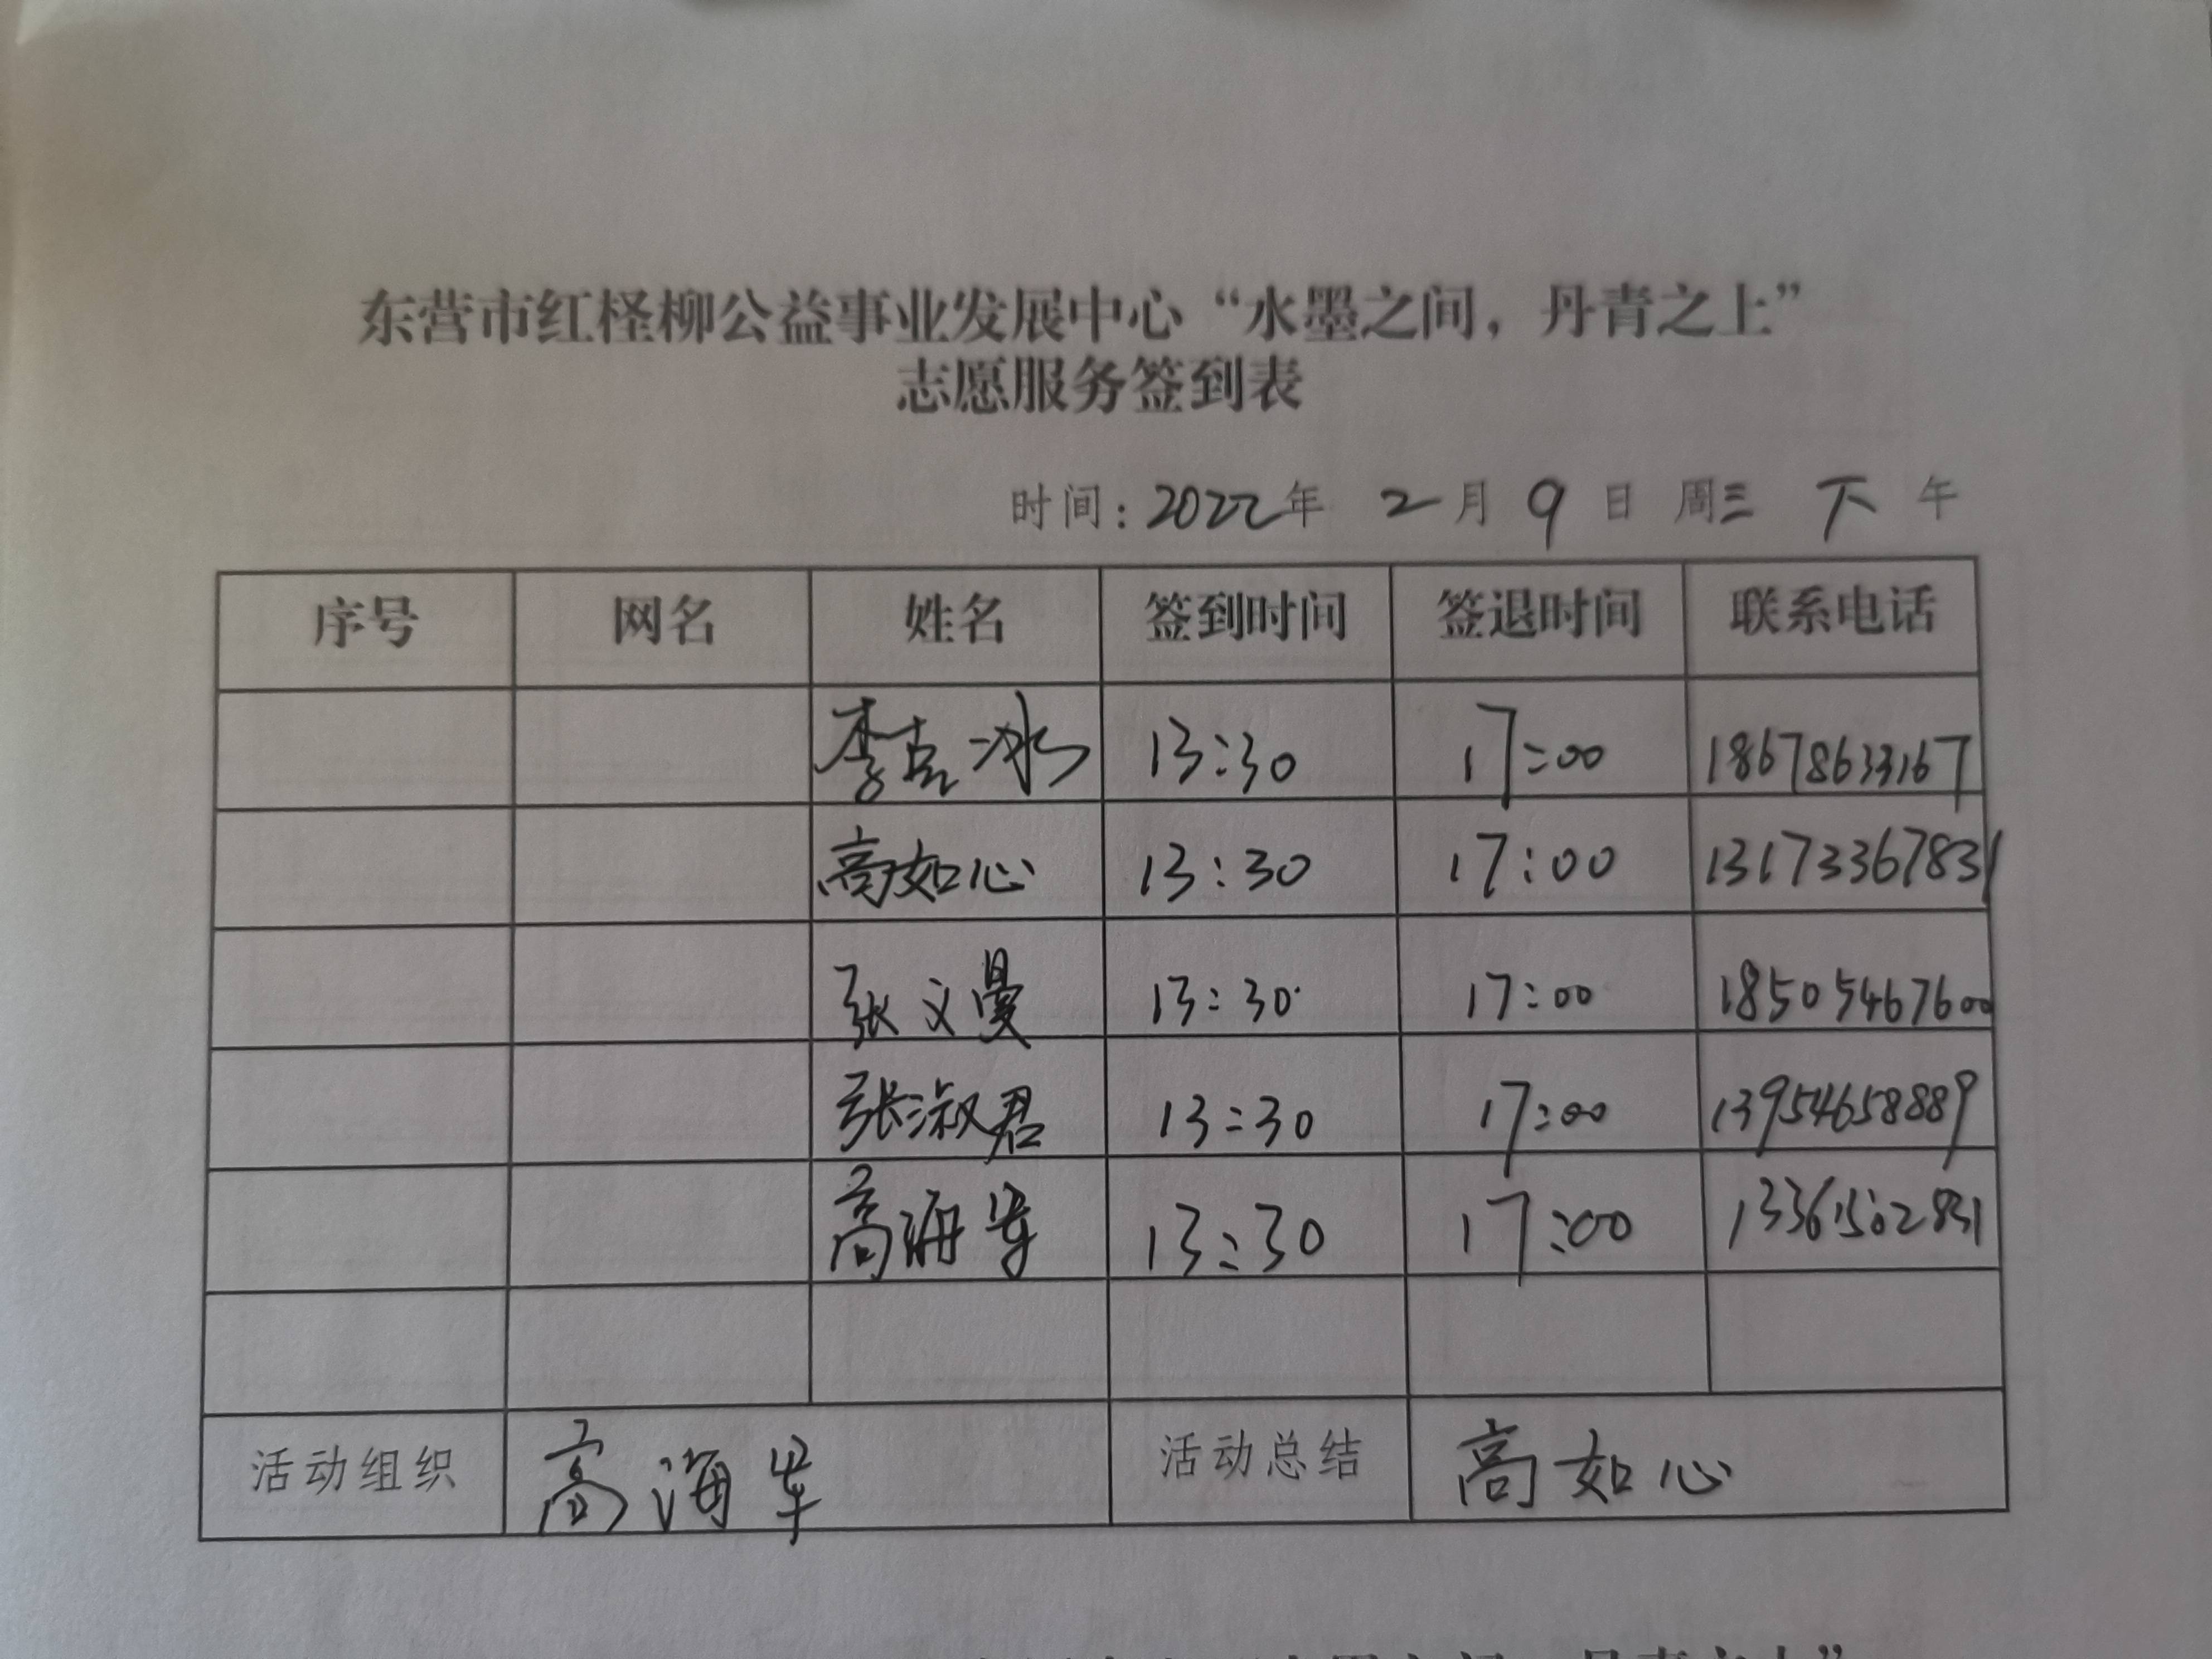 东营市红柽柳公益事业发展中心“水墨之间，丹青之上”
志愿服务签到表
时间：2022年 2月 9日 周三 下午
序号 网名 姓名 签到时间 签退时间 联系电话
李克冰 13:30 17:00 18678633167
高如心 13:30 17:00 13173367831
张文曼 13:30 17:00 18505467600
张淑君 13:30 17:00 13954658889
高海 13:30 17:00 13361502831
活动组织 高海 活动总结 高如心